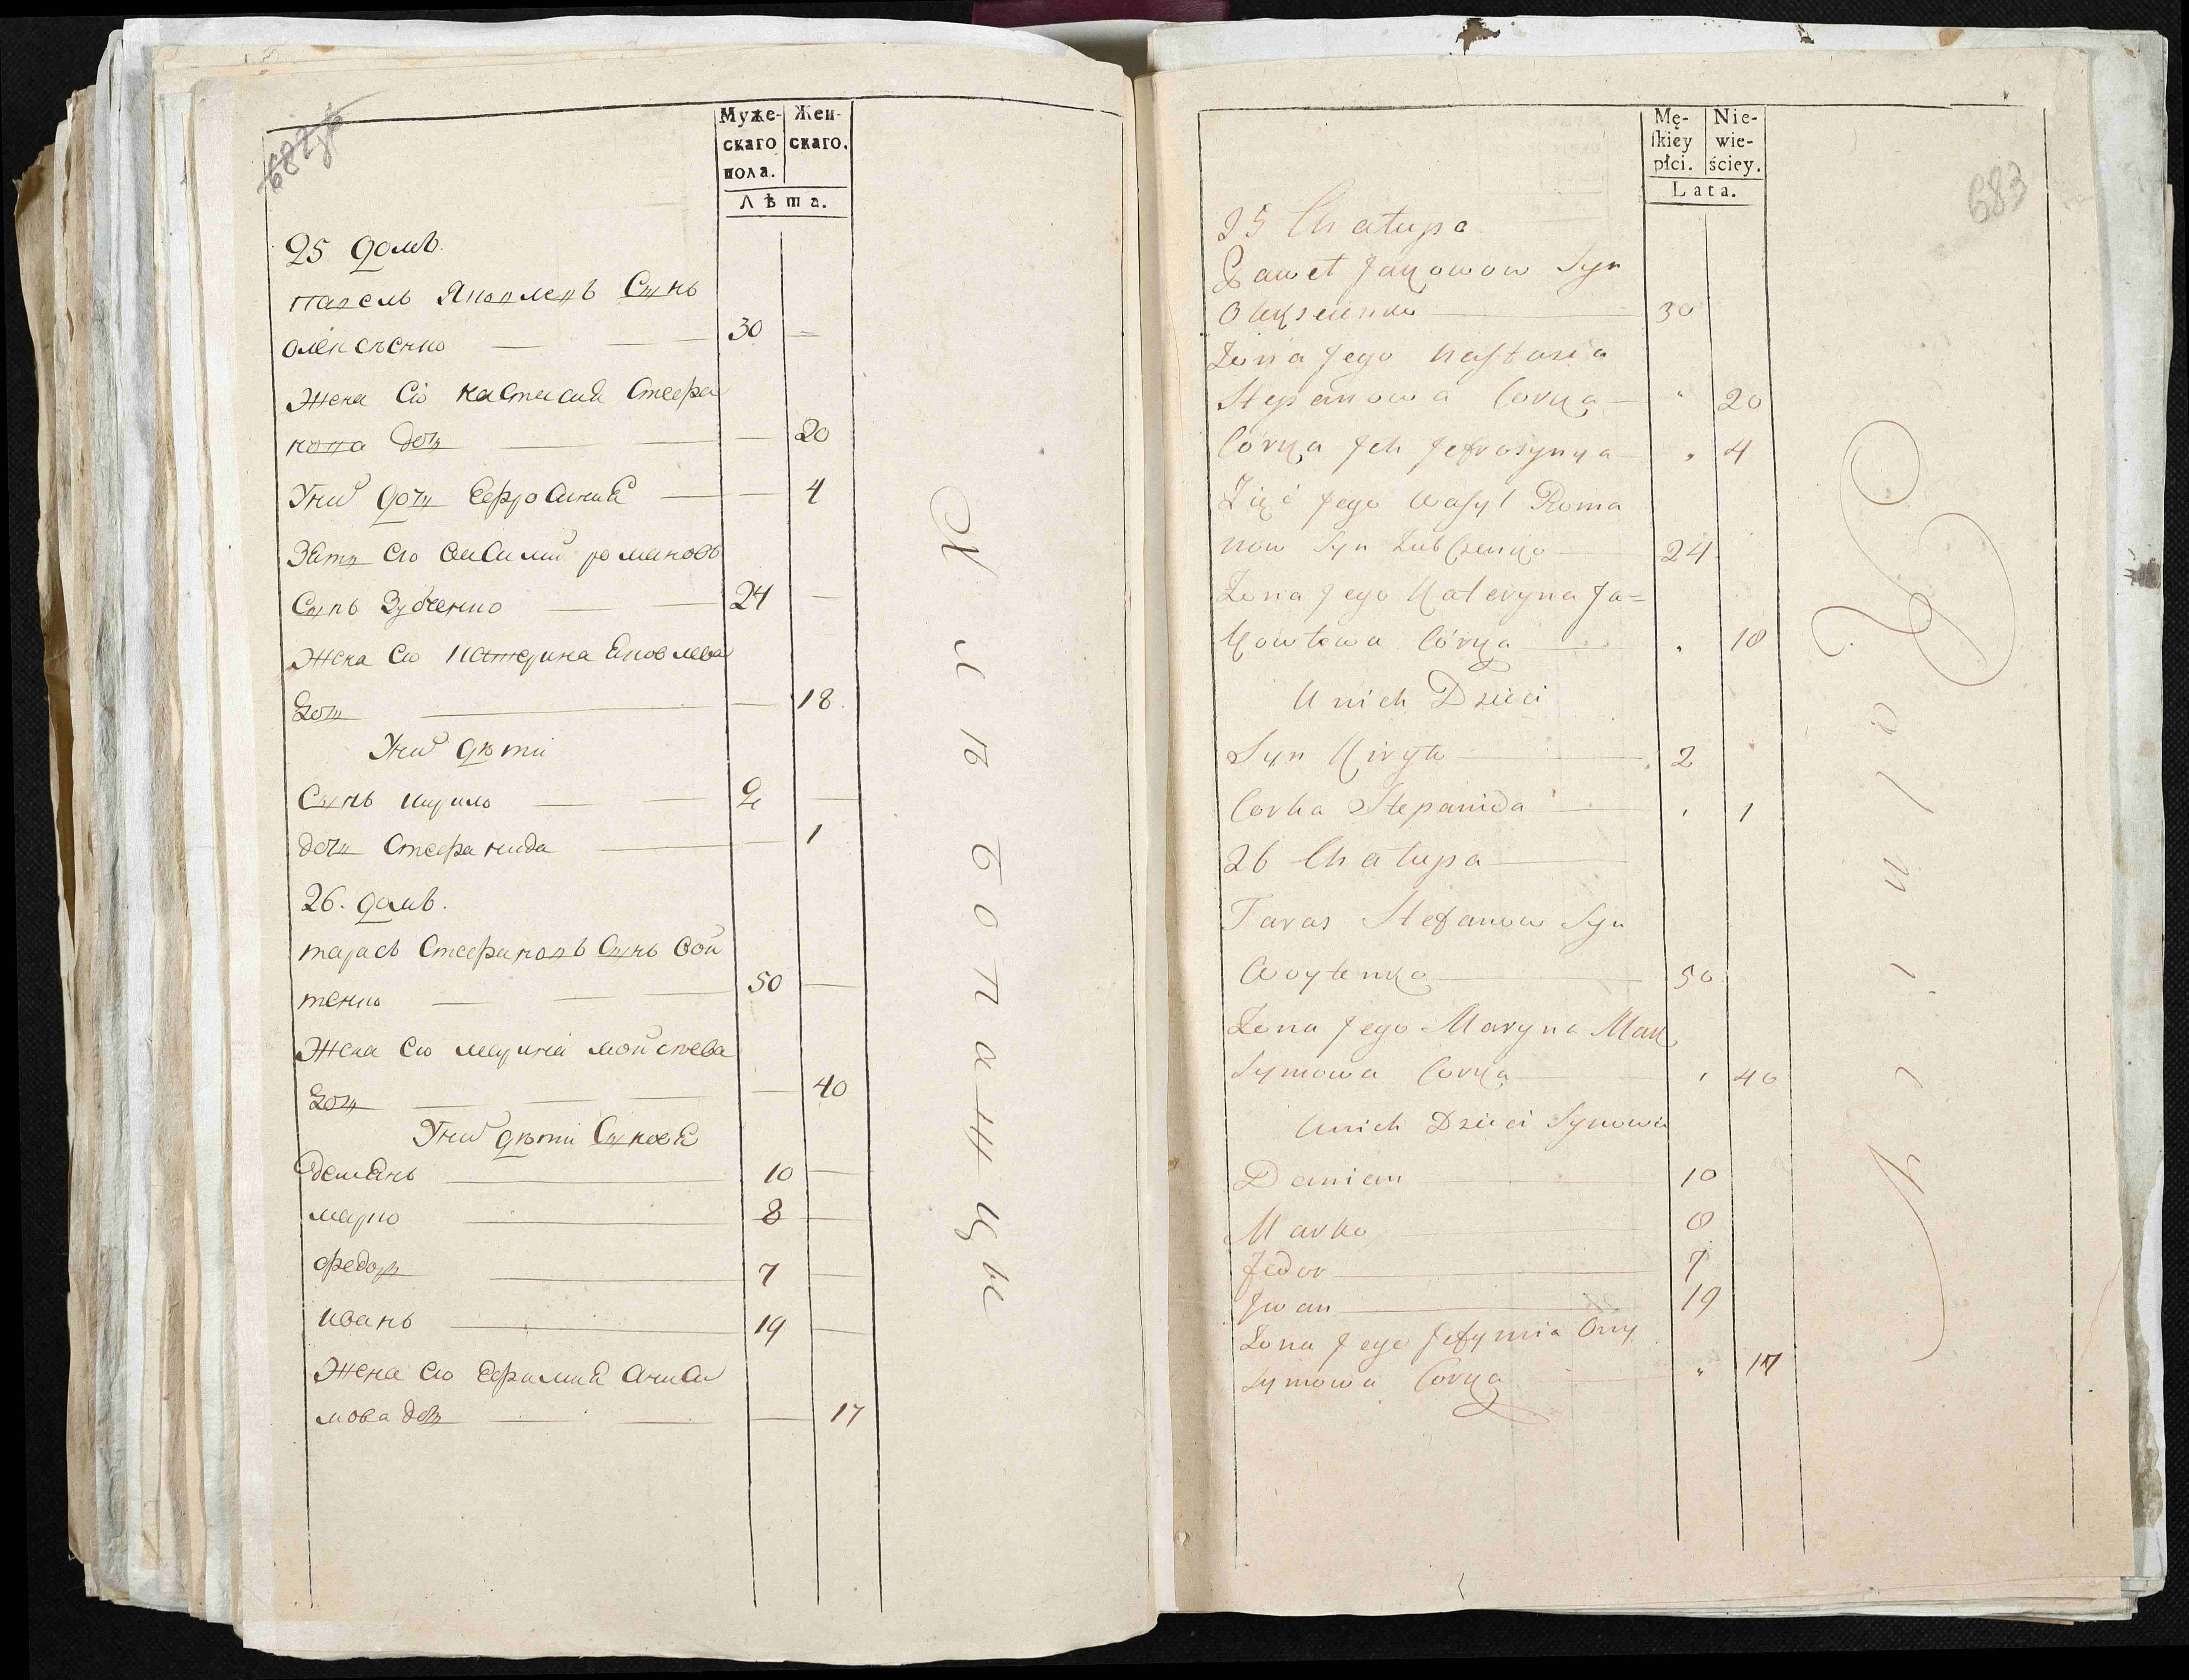 Муже-
скаго
пола.
Жен-
скаго.
Лѣта.
25 домъ.
павелъ Яковлевъ Сынъ
олексѣенко — — 30 —
Жена Єго настасия Стефа
нова дочь — — — 20
Уних дочь Ефросиния — — 4
Зять єго василий романовъ
Сынъ Зубченко — — 24 —
Жена єго катерина яковлева
дочь — — 18.
Уних дѣти
Сынъ кирило — — 2 —
дочь Стефанида — — 1
26. домъ.
тарасъ Стефановъ Сынъ вой
тенко — — — 50 —
Жена єго марина мойсѣева
дочь — — — — 40
Уних дѣти Сыновя
демянъ — 10 —
марко — 8 —
федоръ — 7 —
иванъ — 19 —
Жена єго Ефимия Аниси
мова дочь — — — 17
683
Mę-
skiey
płci.
Nie-
wie-
ściey.
Lata.
25 Chałupa
Paweł Jakowow Syn
Olekseienko — 30
Żona Jego Nastasia
Stepanowa Corka — " 20
Córka Jch Jefrosynya — " 4
Zięć Jego Wasyl Roma
now Syn Zubczenko — 24
Żona Jego Kateryna Ja=
kowlowa Córka — " 18
U nich Dzieci
Syn Kiryło — 2
Corka Stepanida — " 1
26 Chałupa —
Taras Stefanow Syn
Woytenko — 50
Żona Jego Maryna Mak
symowa Corka — " 40
Unich Dzieci Synowie
Damian — 10
Marko — 8
Fedor — 7
Jwan — 19
Żona Jego Jefymia Ony
symowa Corka — " 17